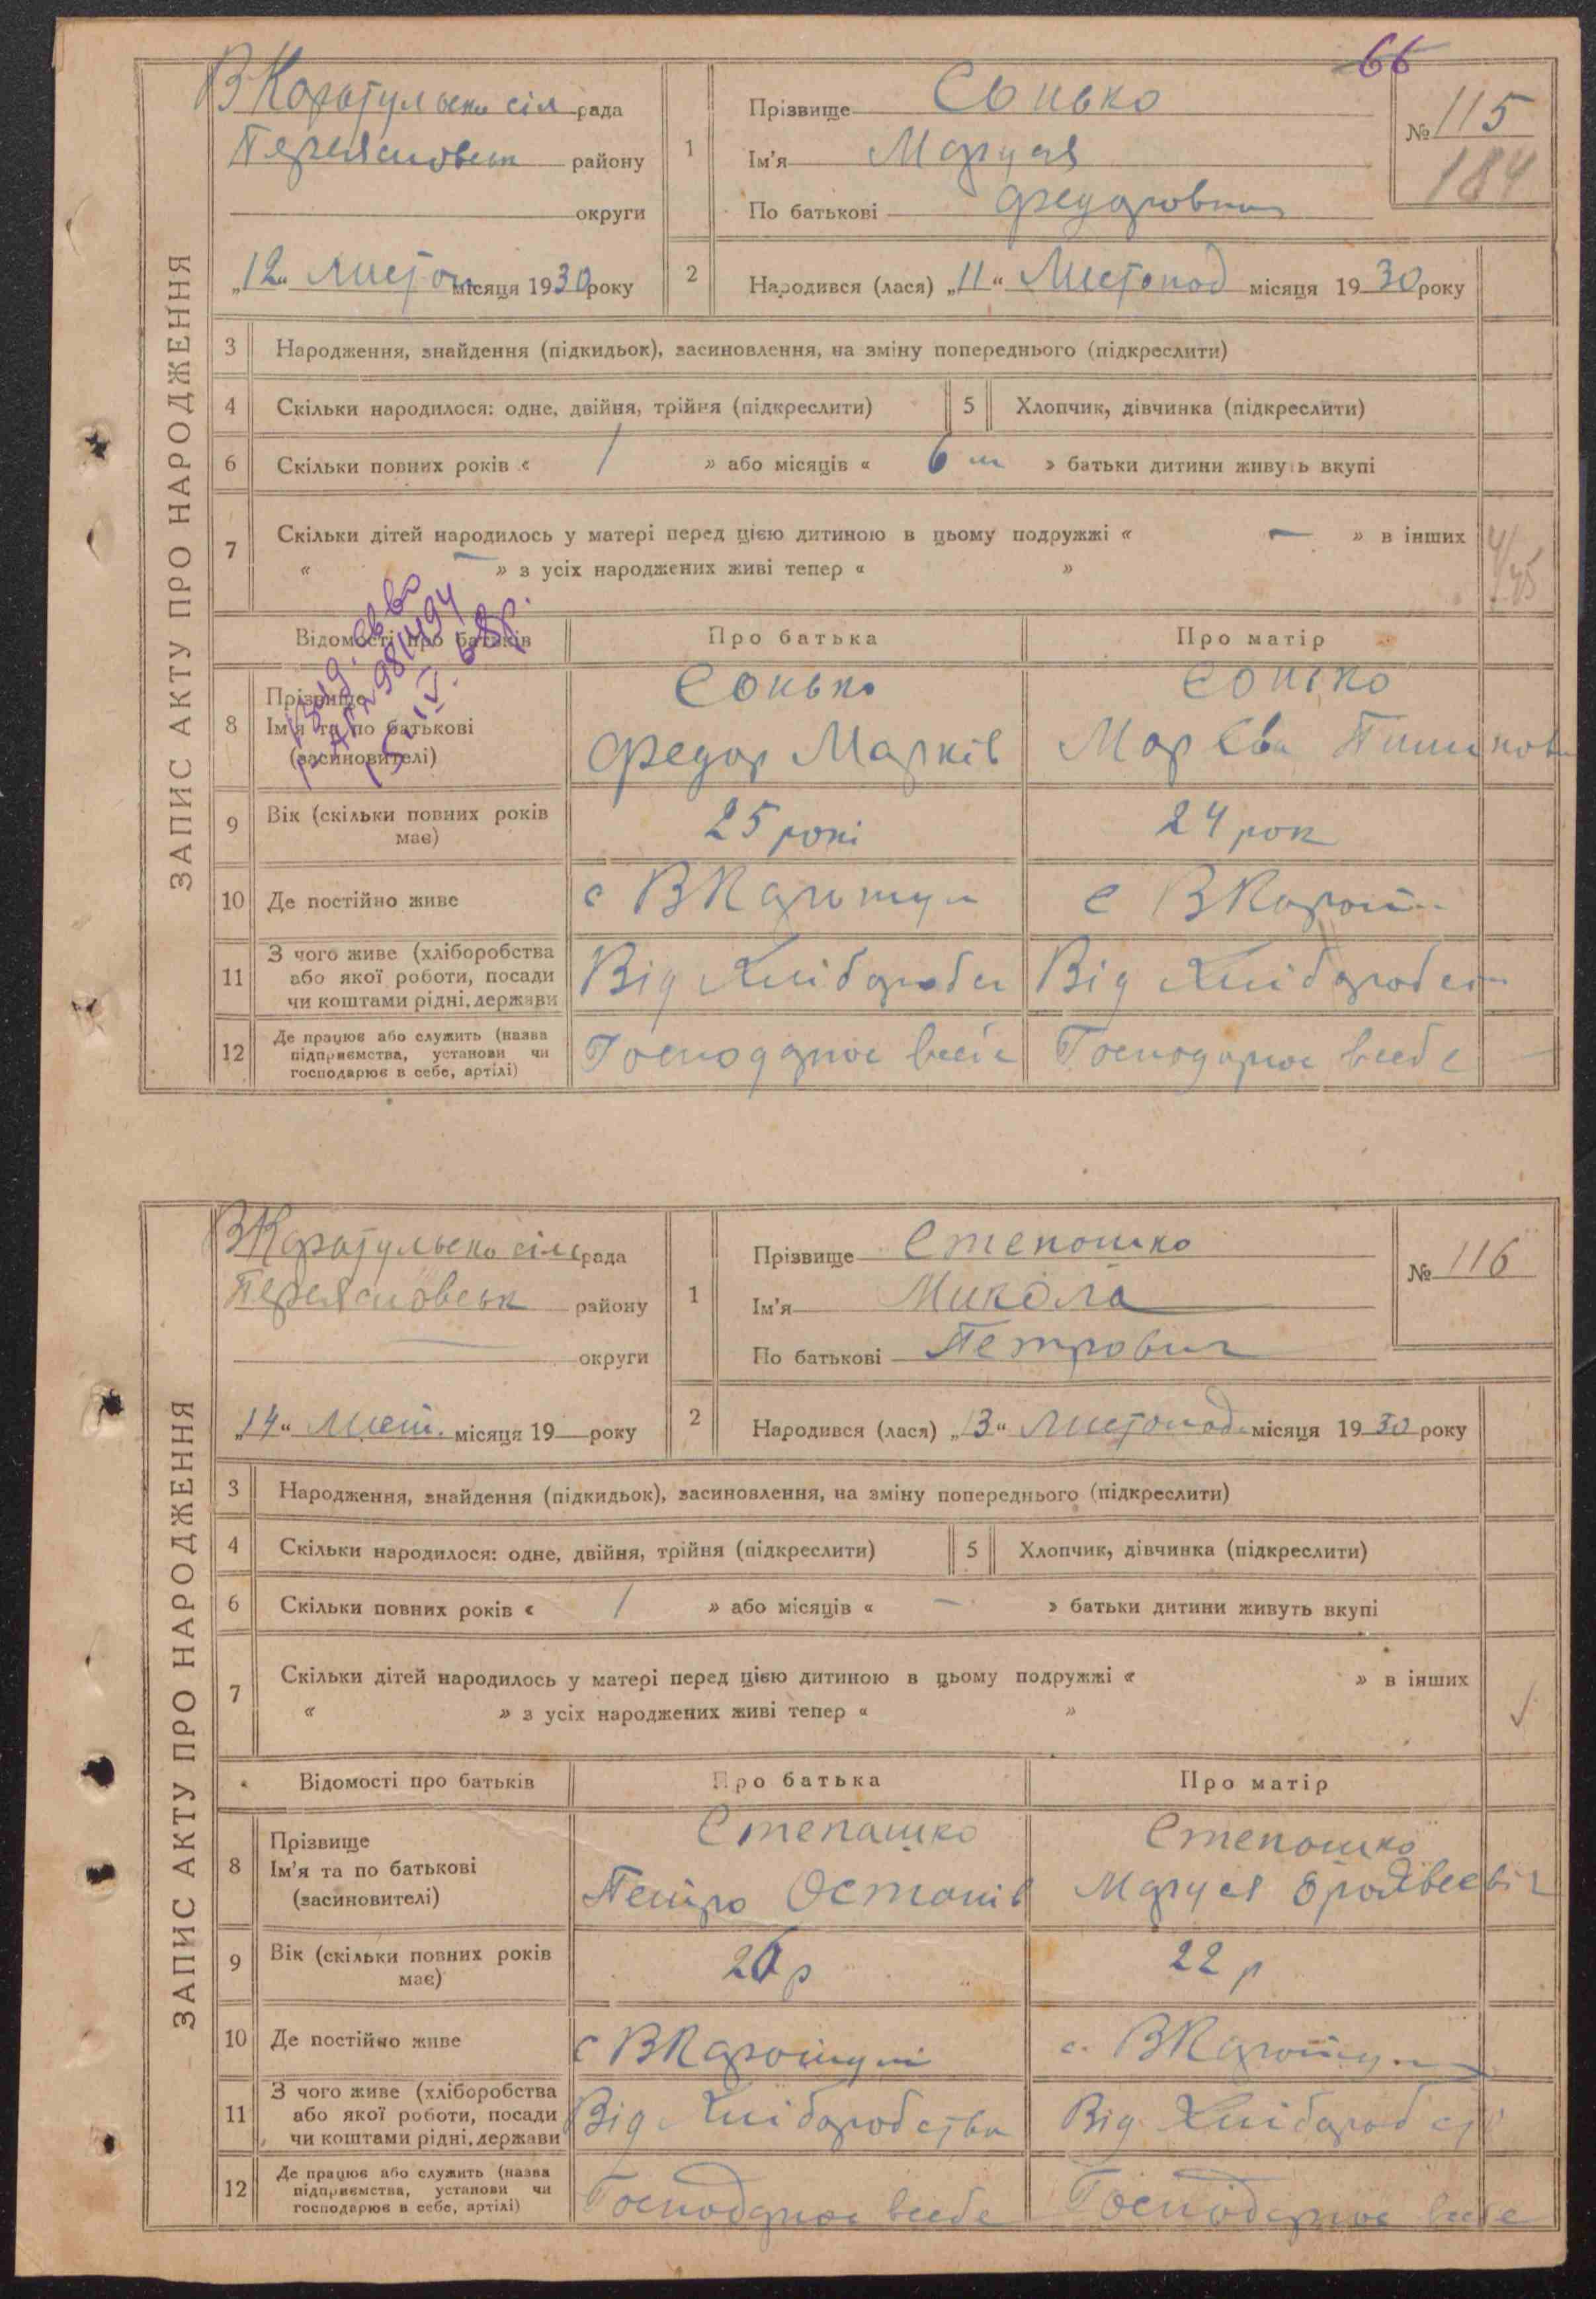 66
ЗАПИС АКТУ ПРО НАРОДЖЕННЯ
В Каратульська сіл рада
Переяславськ району
округи
„12“ Листоп місяця 1930 року
1
Прізвище Сонько
Ім'я Маруся
По батькові Федоровна
№ 115
184
2
Народився (лася) „11“ Листопад місяця 1930 року
3 Народження, знайдення (підкидьок), засиновлення, на зміну попереднього (підкреслити)
4 Скільки народилося: одне, двійня, трійня (підкреслити) 5 Хлопчик, дівчинка (підкреслити)
6 Скільки повних років « 1 » або місяців « 6 м » батьки дитини живуть вкупі
7 Скільки дітей народилось у матері перед цією дитиною в цьому подружжі « — » в інших
« — » з усіх народжених живі тепер « »
Відомості про батьків Про батька Про матір
8 Прізвище
Ім'я та по батькові
(засиновителі)
Сонько
Федор Марків
Сонько
9 Вік (скільки повних років має) 25 рокі 24 рок
10 Де постійно живе с ВКаратул с ВКарат
11 З чого живе (хліборобства або якої роботи, посади чи коштами рідні, держави Від Хліборобст Від Хліборобст
12 Де працює або служить (назва підприємства, установи чи господарює в себе, артілі) Господарює всебе Господарює всебе
ЗАПИС АКТУ ПРО НАРОДЖЕННЯ
ВКаратульська сіл рада
Переяславськ району
округи
„14“ Лист. місяця 19 року
1
Прізвище Степашко
Ім'я Микола
По батькові Петрович
№ 116
2
Народився (лася) „13“ Листопад місяця 1930 року
3 Народження, знайдення (підкидьок), засиновлення, на зміну попереднього (підкреслити)
4 Скільки народилося: одне, двійня, трійня (підкреслити) 5 Хлопчик, дівчинка (підкреслити)
6 Скільки повних років « 1 » або місяців « — » батьки дитини живуть вкупі
7 Скільки дітей народилось у матері перед цією дитиною в цьому подружжі « » в інших
« » з усіх народжених живі тепер « »
Відомості про батьків Про батька Про матір
8 Прізвище
Ім'я та по батькові
(засиновителі)
Степашко
Петро Остапів
Степашко
Маруся
9 Вік (скільки повних років має) 22 р
10 Де постійно живе с ВКаратулі с. ВКаратул
11 З чого живе (хліборобства або якої роботи, посади чи коштами рідні, держави Від Хліборобства Від Хліборобст
12 Де працює або служить (назва підприємства, установи чи господарює в себе, артілі) Господарює всебе Господарює всебе